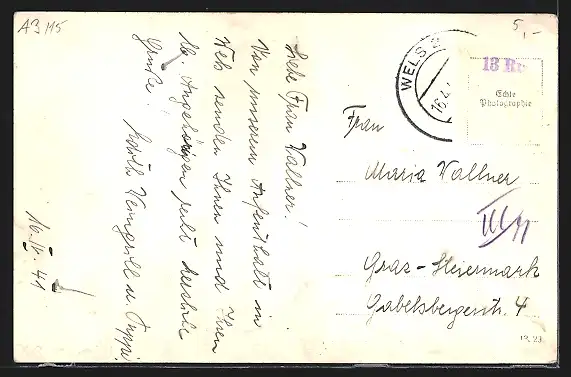 A3 M5
5,-
Liebe Frau Vallner!
Von unserem Aufenthalt in
Wels senden Ihnen und Ihren
lb. Angehörigen sehr herzliche
Grüße!
u. Puppi
16.IV.41
WELS
13 Rp
Echte
Photographie
Frau
Maria Vallner
III/
Graz-Steiermark
Gabelsbergerstr. 4